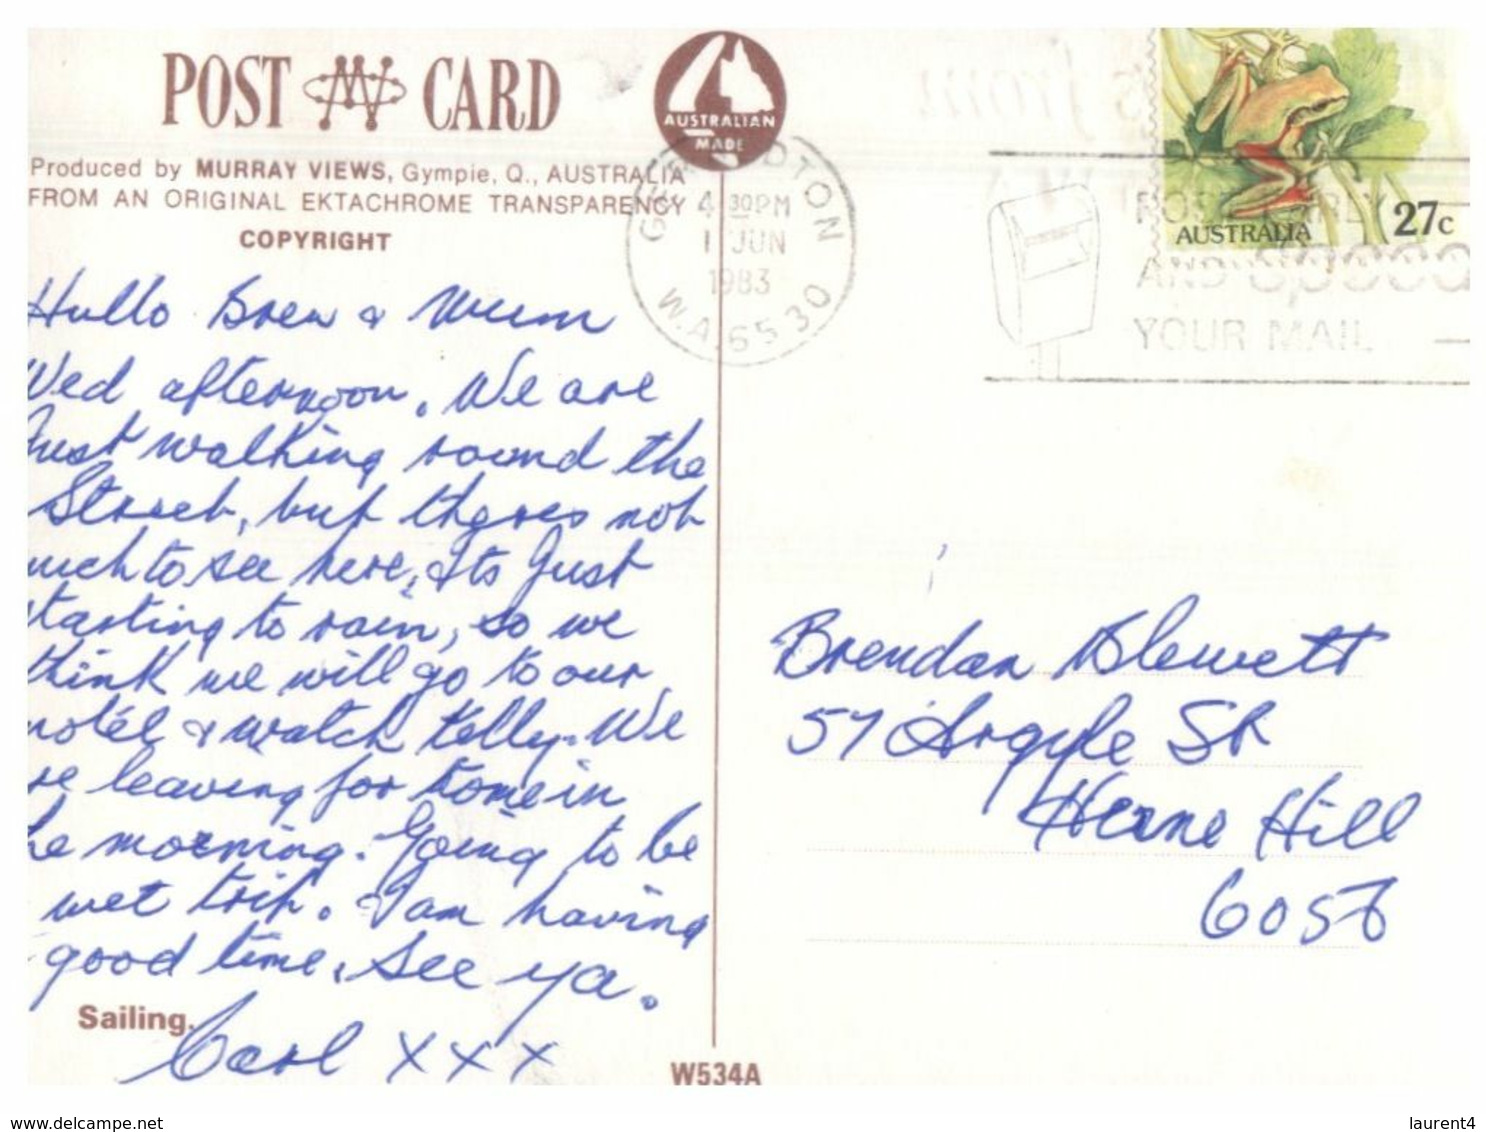 POST CARD
AUSTRALIAN
MADE
Produced by MURRAY VIEWS, Gympie, Q., AUSTRALIA
FROM AN ORIGINAL EKTACHROME TRANSPARENCY
COPYRIGHT
GERALDTON
4 30PM
1 JUN
1983
W.A 6530
POST EARLY
AND SPEED
YOUR MAIL
AUSTRALIA 27c
Hullo Bren & Mum
Wed afternoon. We are
Just walking round the
Street, but theres not
much to see here, Its Just
starting to rain, so we
think we will go to our
motel & watch telly. We
re leaving for home in
he morning. Going to be
wet trip. I am having
good time. See ya.
Carl xxx
Sailing.
Brendan Blewett
57 Argyle St
Herne Hill
6056
W534A
www.delcampe.net
laurent4